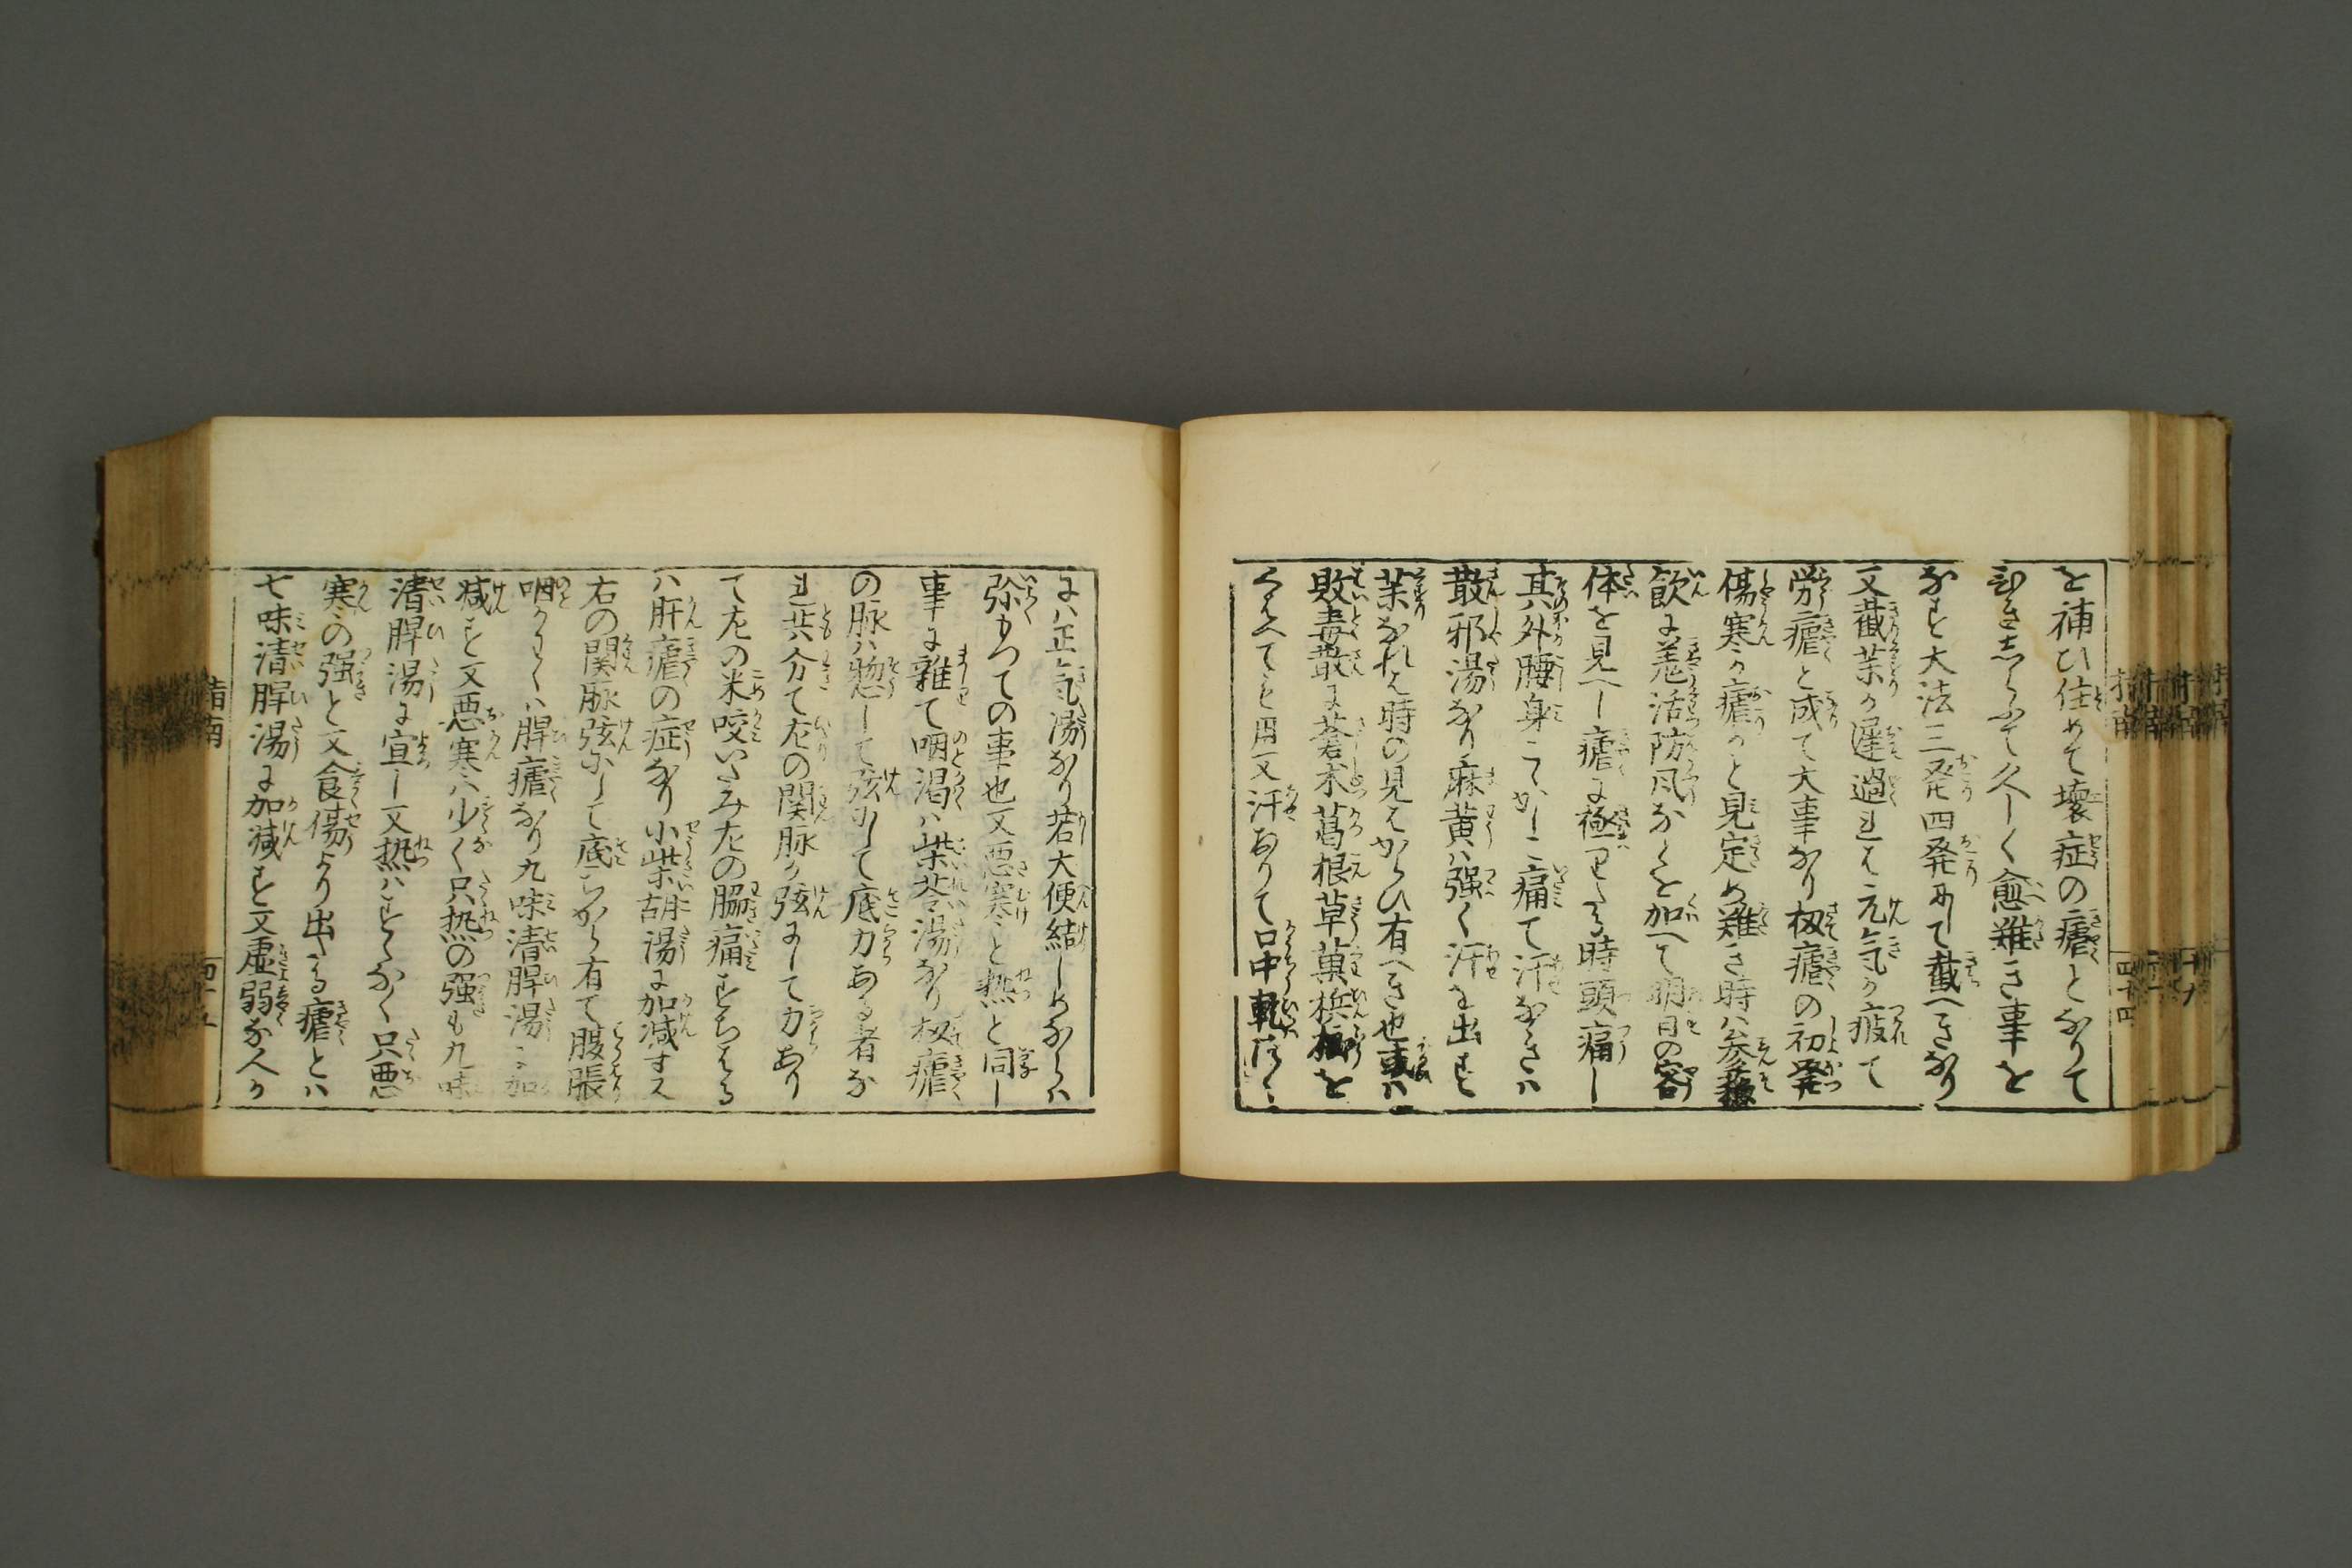 を補ひ住めて壊症の瘧となりて
ひきしろふて久しく愈難き事を
なす大法三発四発にて截へきなり
又截薬か遅過れは元気か疲て
労瘧と成て大事なり扨瘧の初発
傷寒か瘧かと見定め難き時ハ参蘇
飲に羌活防風なとを加へて明日の容
体を見へし瘧に極りたる時頭痛し
其外腰身こゝかしこ痛て汗なきハ
散邪湯なり麻黄ハ強く汗を出す
薬なれは時の見はからひ有へき也或ハ
敗毒散に蒼朮葛根草菓梹榔を
くはへても用又汗ありて口中乾
にハ正気湯なり若大便結しめならハ
弥もつての事也又悪寒と熱と同し
事に雑て咽渇ハ柴苓湯なり扨瘧
の脉ハ惣して弦にして底力ある者な
れ共分て左の関脉か弦にして力あり
て左の米咬いたみ左の脇痛すちはる
ハ肝瘧の症なり小柴胡湯に加減す又
右の関脉弦にして底ちから有て腹脹
咽かわくハ脾瘧なり九味清脾湯に加
減す又悪寒ハ少く只熱の強も九味
清脾湯に宜し又熱ハすくなく只悪
寒の強と又食傷より出たる瘧とハ
七味清脾湯に加減す又虚弱な人か
指南
四十四